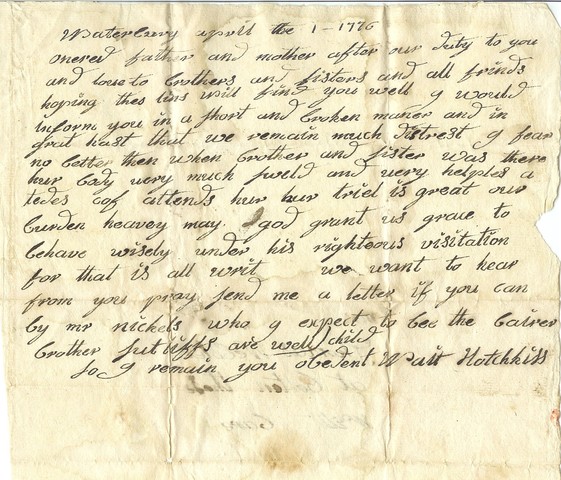 Waterbury april the 1 - 1776
onered father and mother after our duty to you
and love to brothers and sisters and all frinds
hoping thes lins will find you well y would
inform you in a short and broken maner and in
grat hast that we remain much distrest y fear
no better then when brother and sister was there
hur body very much sweld and very helples a
tedes cof attends hur our triel is great our
burden heavey may god grant us grace to
behave wisely under his righteous visitation
for that is all writ we want to hear
from you pray send me a letter if you can
by mr nickels who y expect to bee the bairer
brother sutliffs are well child
so y remain you obedent Wait Hotchkiss